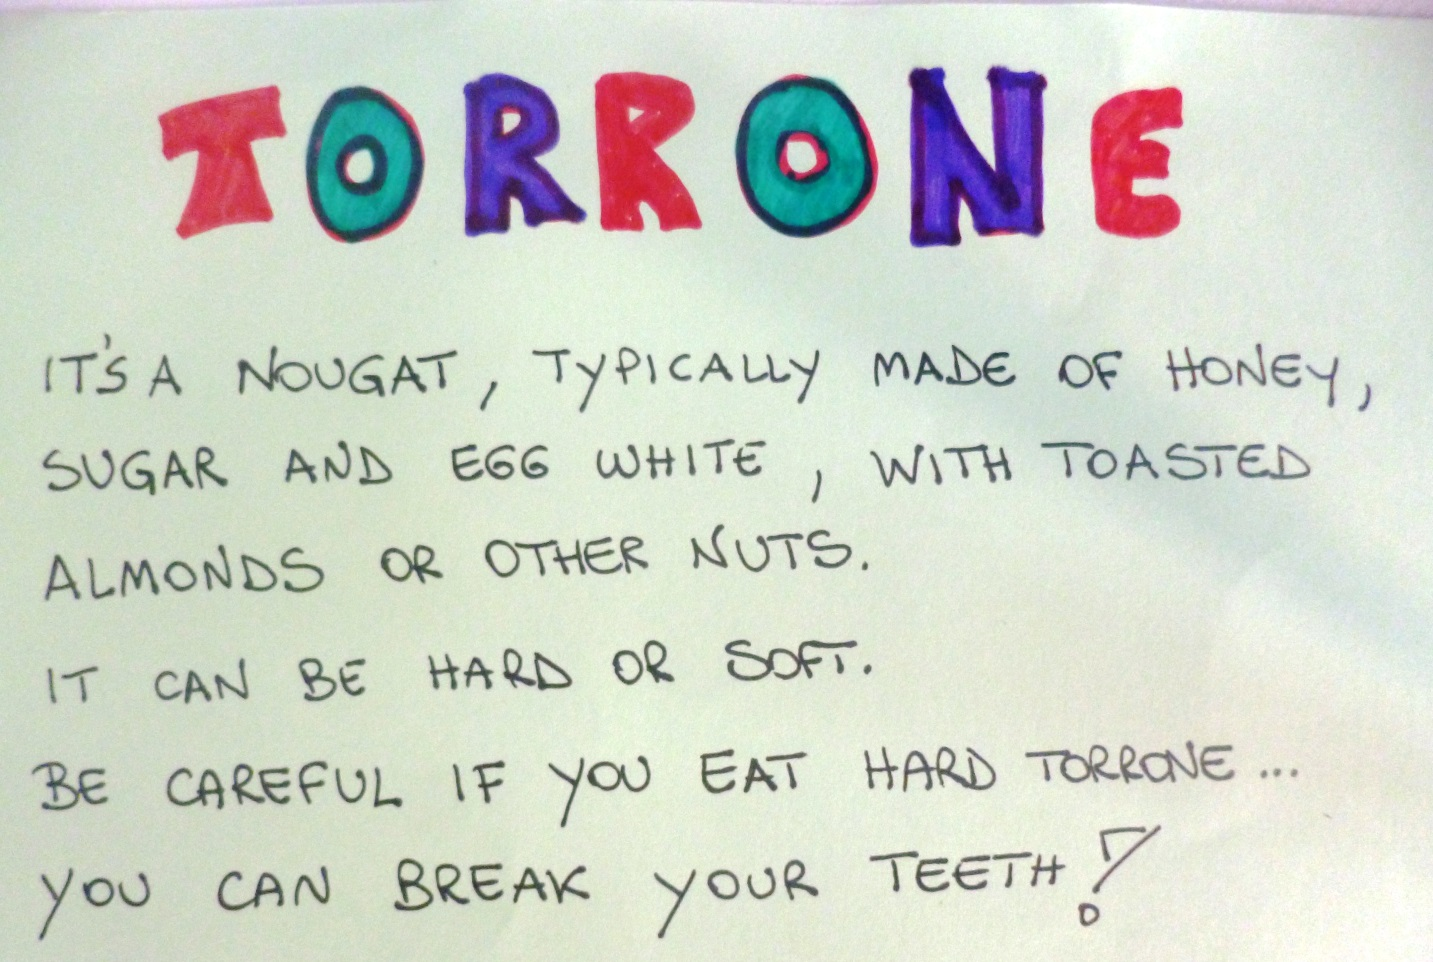 TORRONE
IT'S A NOUGAT, TYPICALLY MADE OF HONEY,
SUGAR AND EGG WHITE, WITH TOASTED
ALMONDS OR OTHER NUTS.
IT CAN BE HARD OR SOFT.
BE CAREFUL IF YOU EAT HARD TORRONE...
YOU CAN BREAK YOUR TEETH!